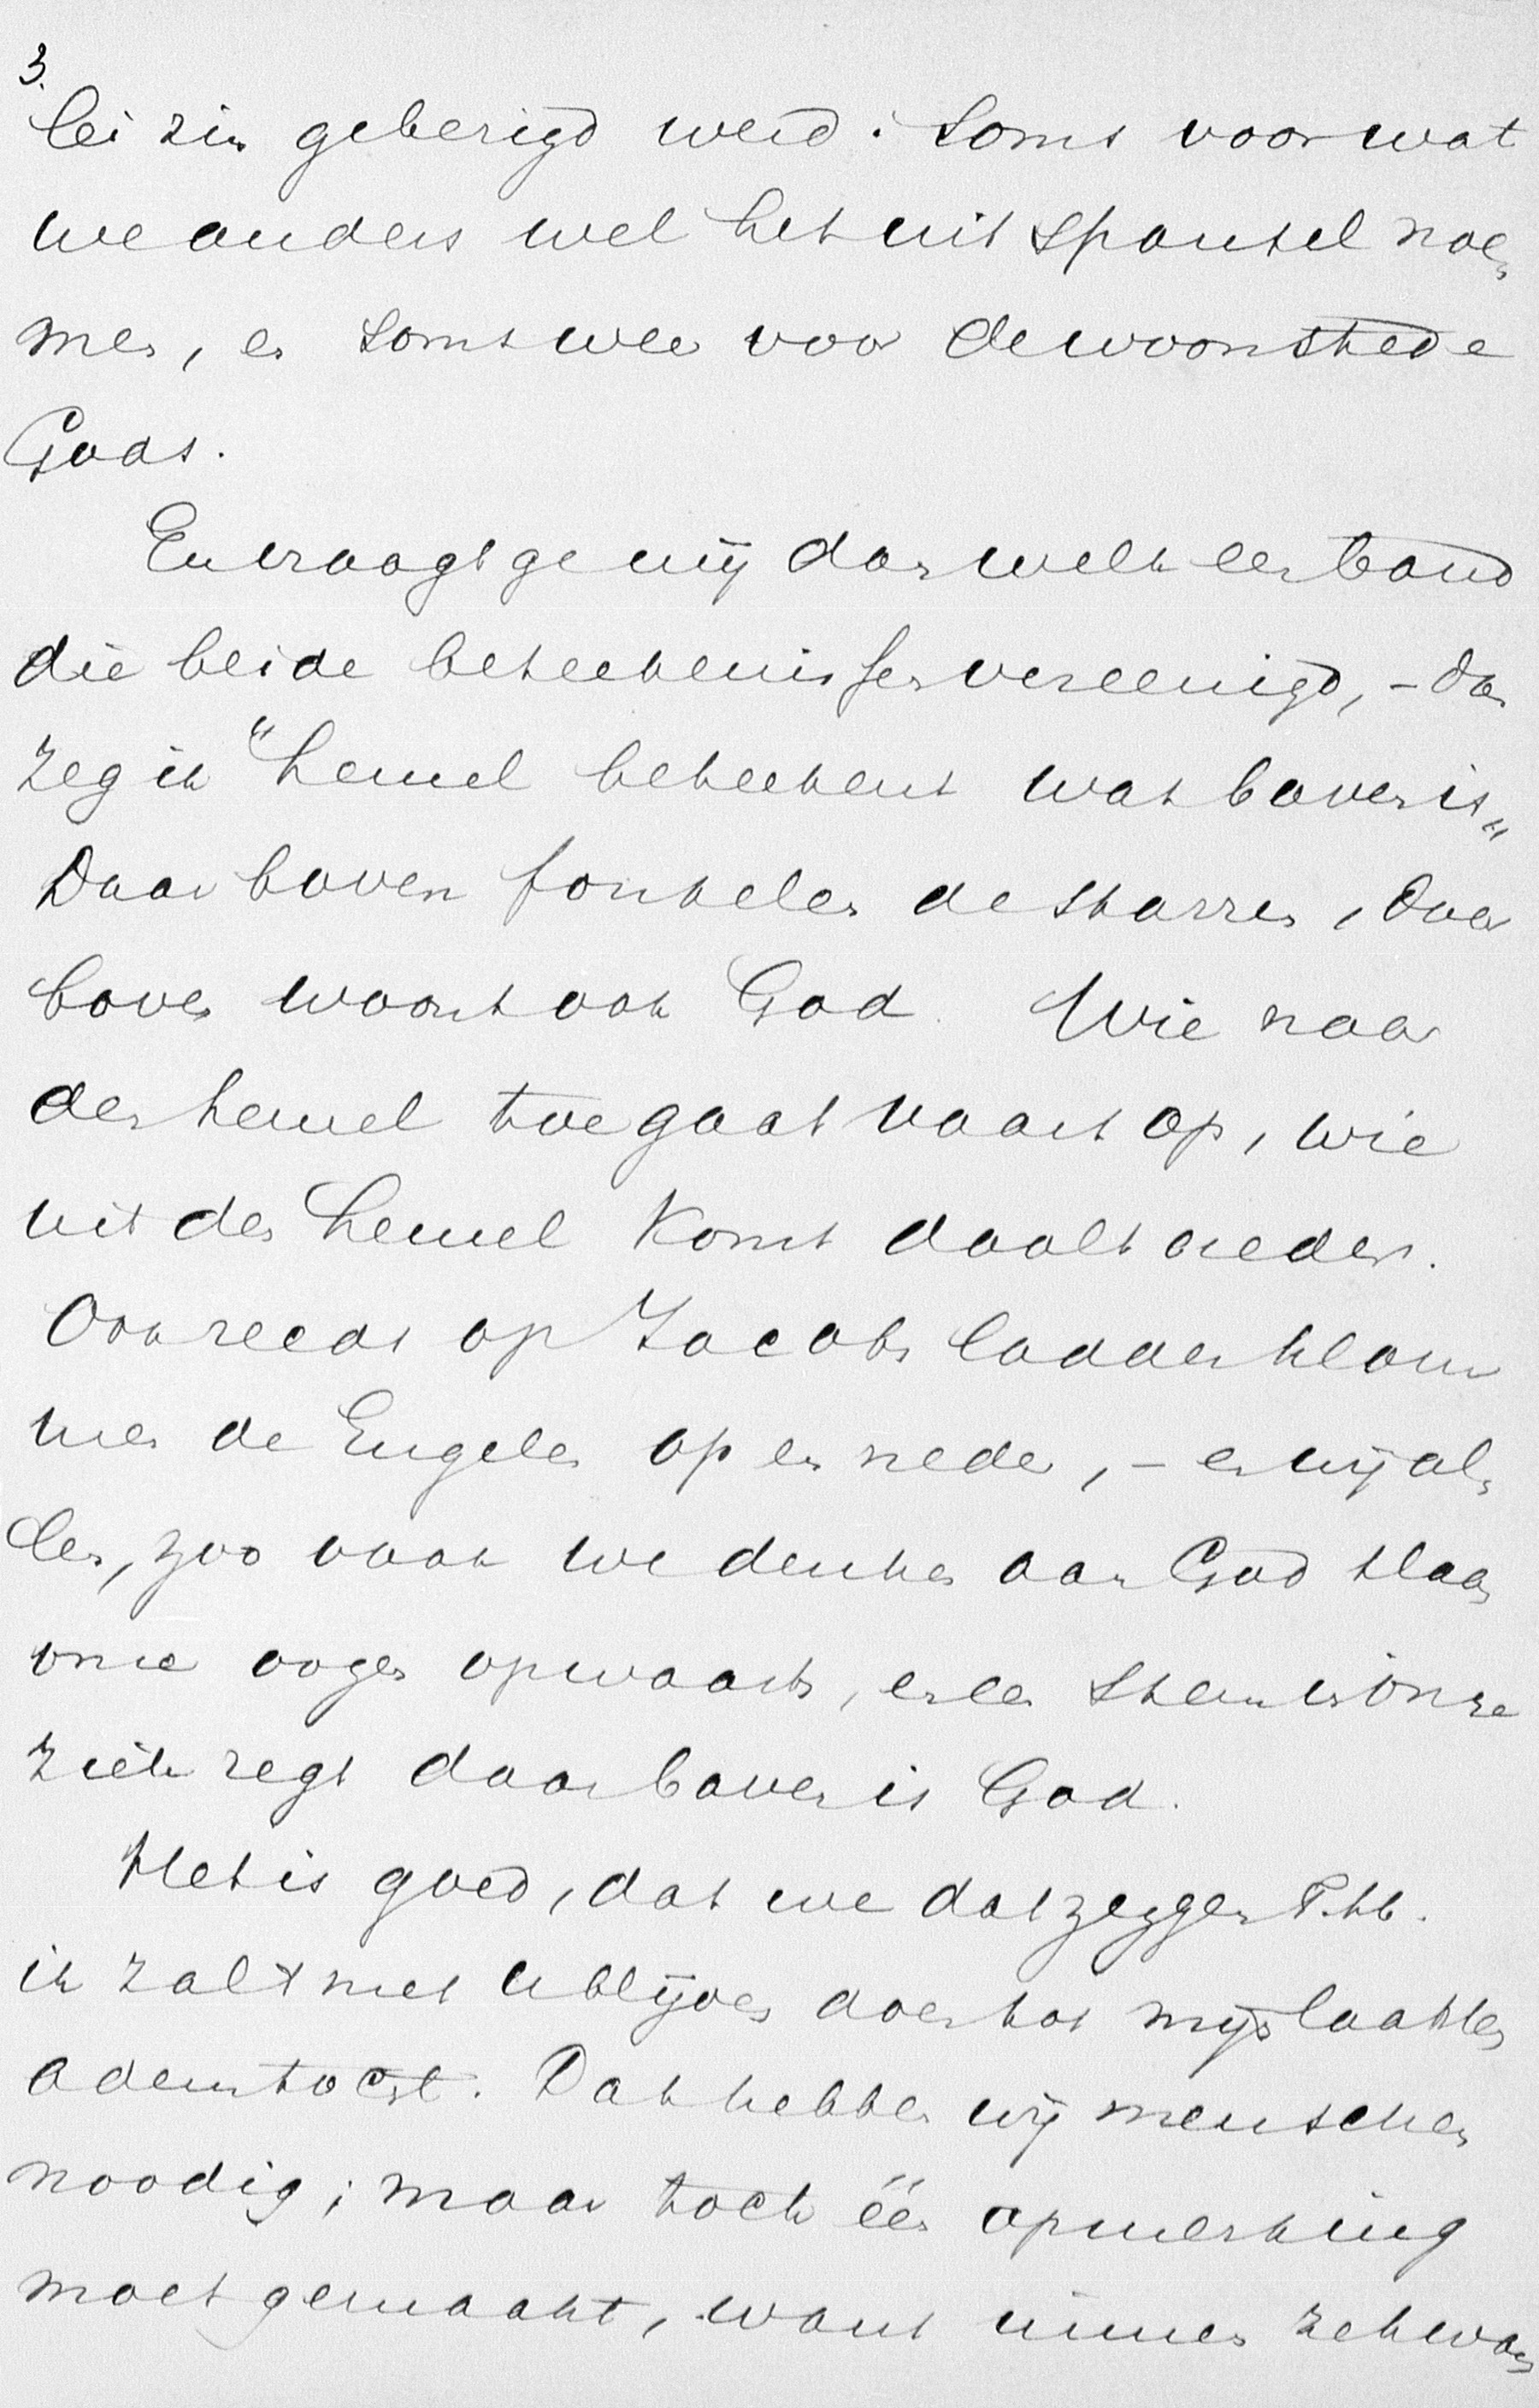 3.
lei zin gebezigd werd. Soms voor wat
we anders wel het uitspansel noe-
men, en soms weer voor de woonstede
Gods.
En vraagt ge mij dan welk een band
die beide beteekenissen vereenigd, – dan
zeg ik "hemel beteekent wat boven is„
Daar boven fonkelen de starren, daar
boven woont ook God. Wie naar
den hemel toegaat vaart op, wie
uit den hemel komt daalt neder.
Ook reeds op Jacobs ladder klom
men de Engelen op en neder, – en wij al-
len, zoo vaak we denken aan God slaan
onze oogen opwaarts, en een stem in onze
ziele zegt daar boven is God.
Het is goed, dat we dat zeggen
ik zal 't met u blijven doen tot mijn laatsten
ademtocht. Dat hebben wij menschen
noodig; maar toch één opmerking
moet gemaakt, want immer